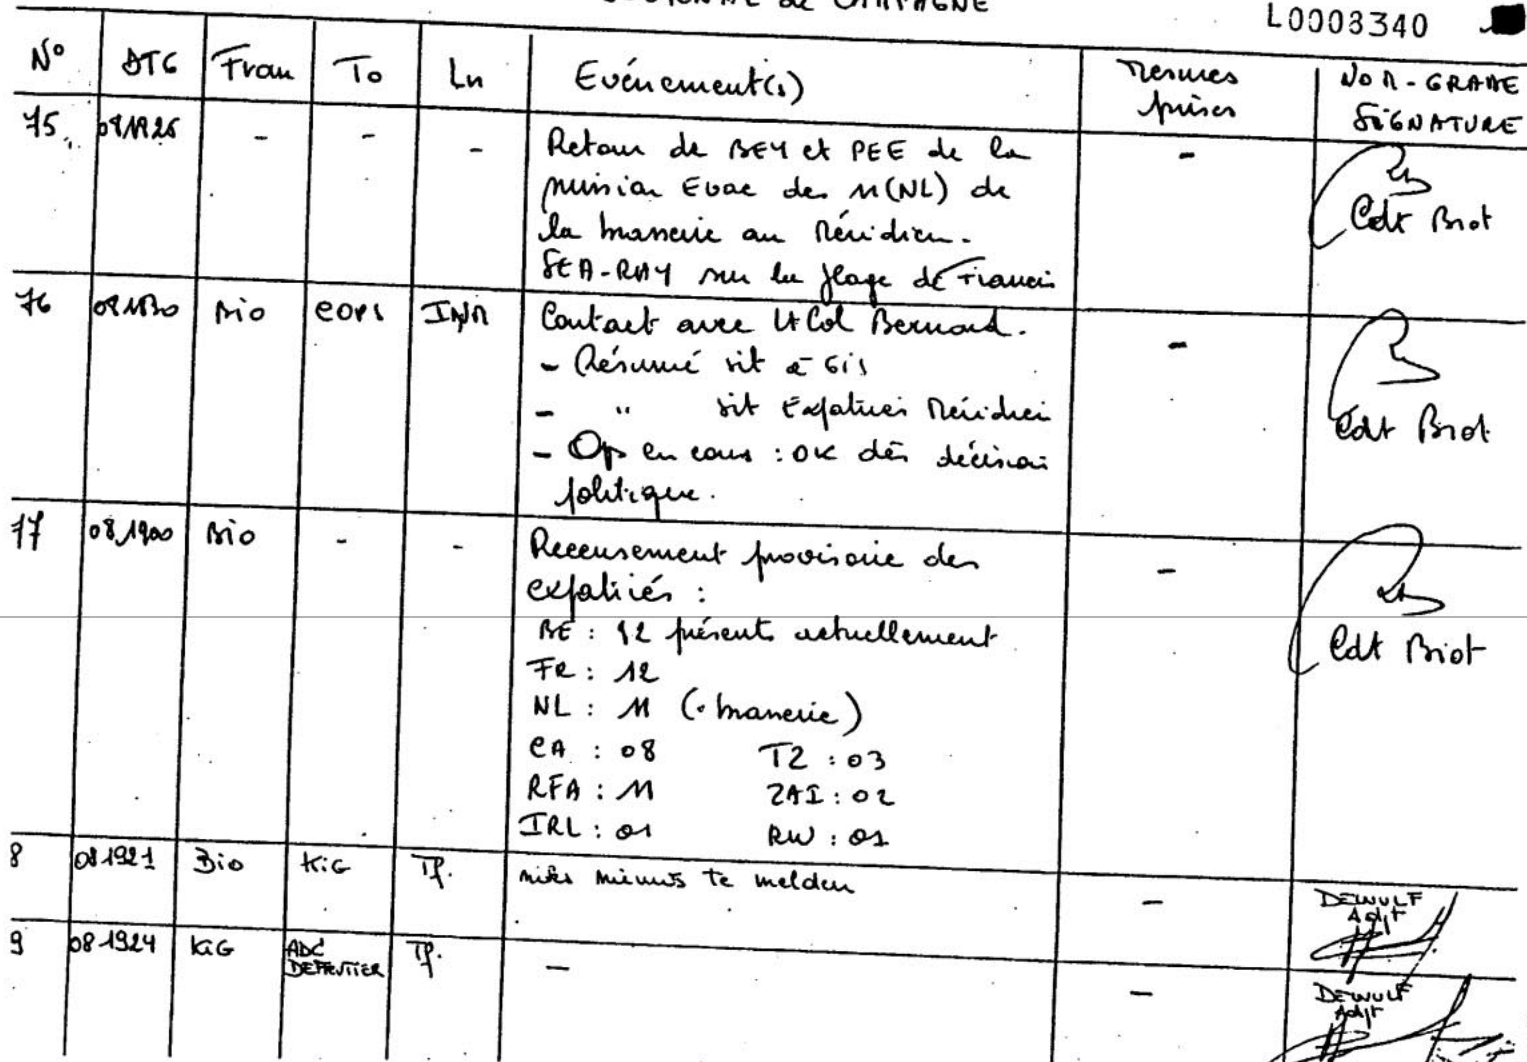 DE CAMPAGNE
L0003340
N° DTG From To Ln Evénement(s) Mesures prises NOM-GRADE SIGNATURE
75. - - - Retour de BEY et PEE de la -
mission Evac des 11(NL) de
la brasserie au Méridien. Cdt Biot
SEA-RAY sur la plage de Francis
76 081830 Bio COPS INM Contact avec Lt Col Bernard. -
- Résumé sit à Gis
- " sit Expatriés Méridien Cdt Biot
- Op en cours : OK dès décision
politique.
77 081900 Bio - - Recensement provisoire des -
expatriés :
BE : 92 présents actuellement Cdt Biot
FR : 12
NL : 11 (brasserie)
CA : 08 TZ : 03
RFA : 11 ZAI : 02
IRL : 01 RW : 01
8 081921 Bio KiG Tf. niks nieuws te melden -
DEWULF
Adjt
9 081924 KiG ADC Tf. - -
DEWULF
Adjt